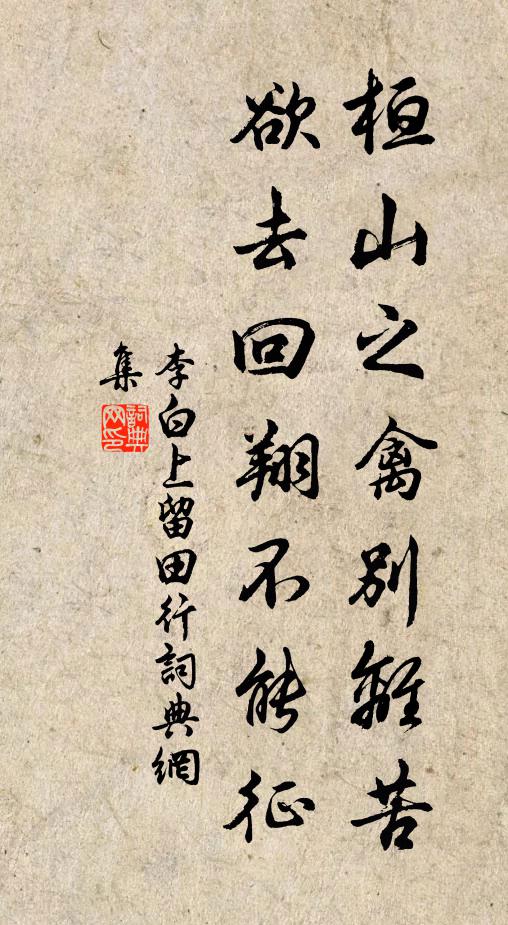 桓山之禽別離苦
欲去回翔不能征
李白上留田行詞典網
集
詞典网印